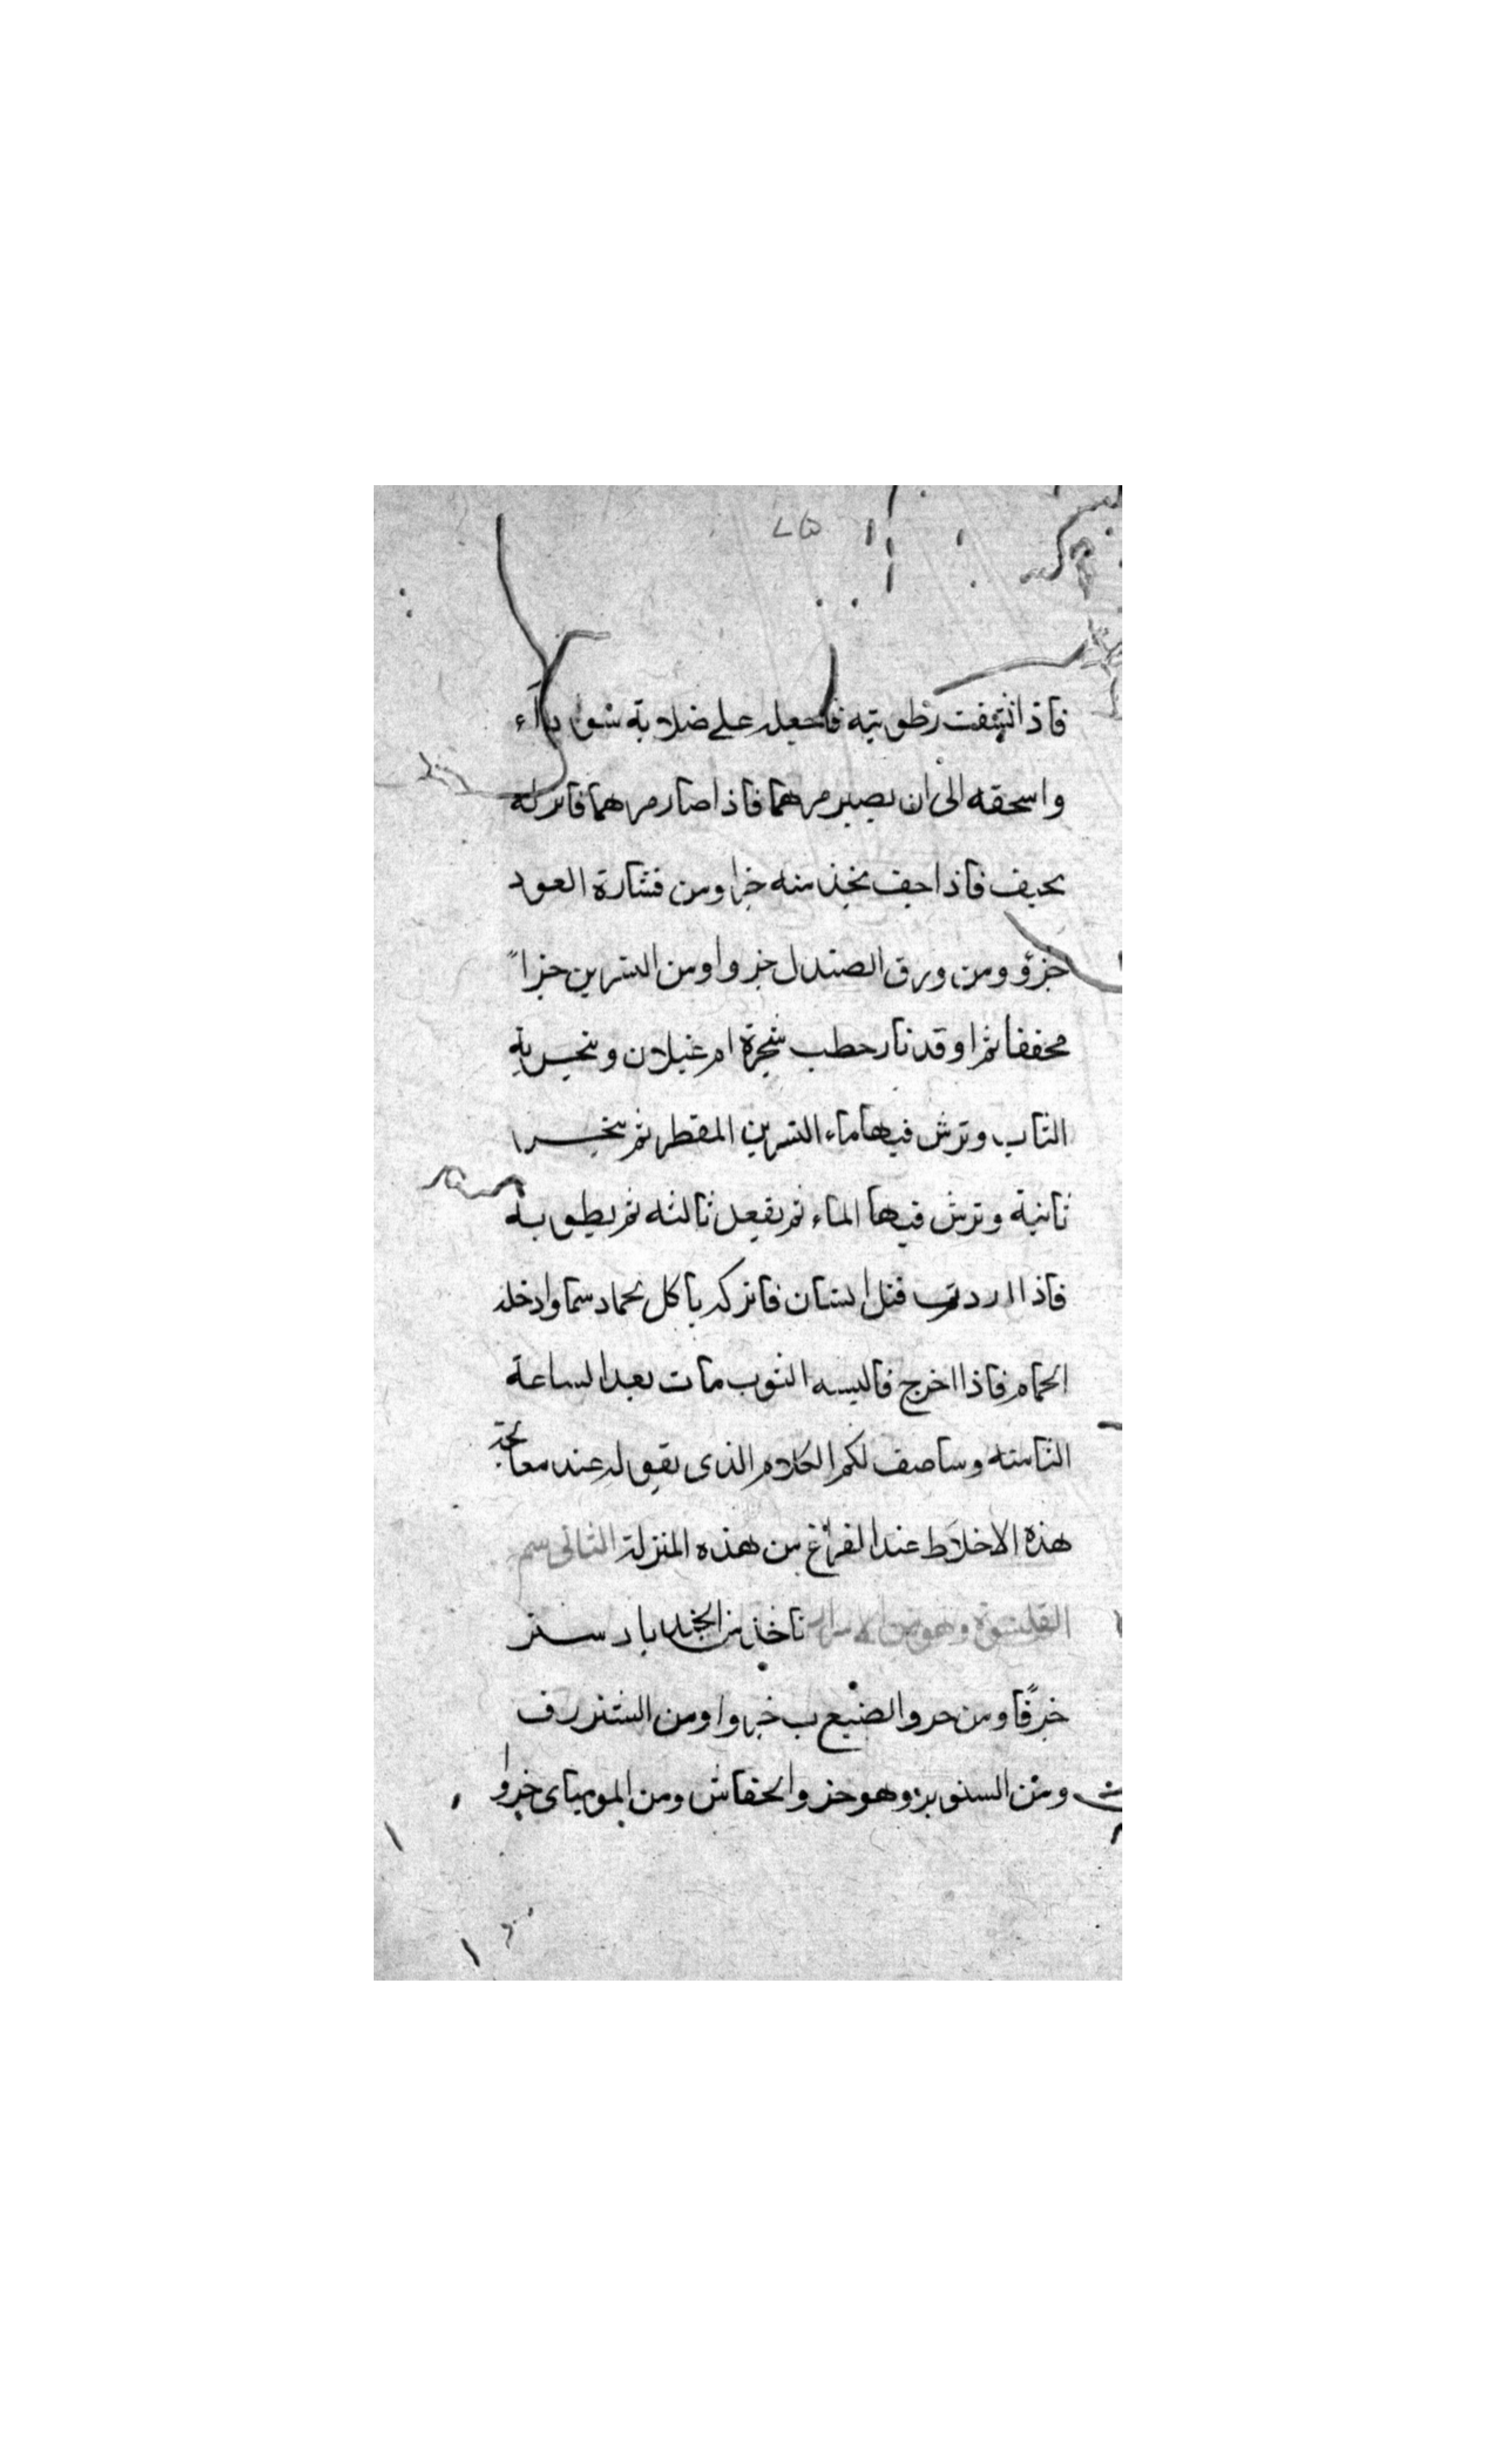 فاذ انتشفت رظوبتيه فاجعله على ضلابة
واسحقه الى ان يصير مرهما فاذا صار مرهما فاتركه
يجيف فاذا جيف يخذ منه خرا ومن فشارة العود
خزؤ ومن ورق الصندل خزوا ومن النسرين خزا
مجففا ثم اوقد نار حطب شجرة ام غيلان وبنجس به
الثاب وترش فيها ماء النسرين المقطر ثم يبخر
ثانية وترش فيها الماء ثم يفعل ثالثه ثم يطوبه
فاذا اردت قتل انسان فاتركه ياكل سما وادخله
الحمام فاذا اخرج فالبسه الثوب مات بعد الساعة
الثامنه وساصف لكم الكلام الذى يقوله عند معالجة
هذه الاخلاط عند الفراغ من هذه المنزلة الثانى سم
القلنسوة وهو من الاسرار تاخذ من الجند بادستر
ومن الضبع ب خروا ومن
ومن وهو خزو الخفاش ومن الموميائ خروا